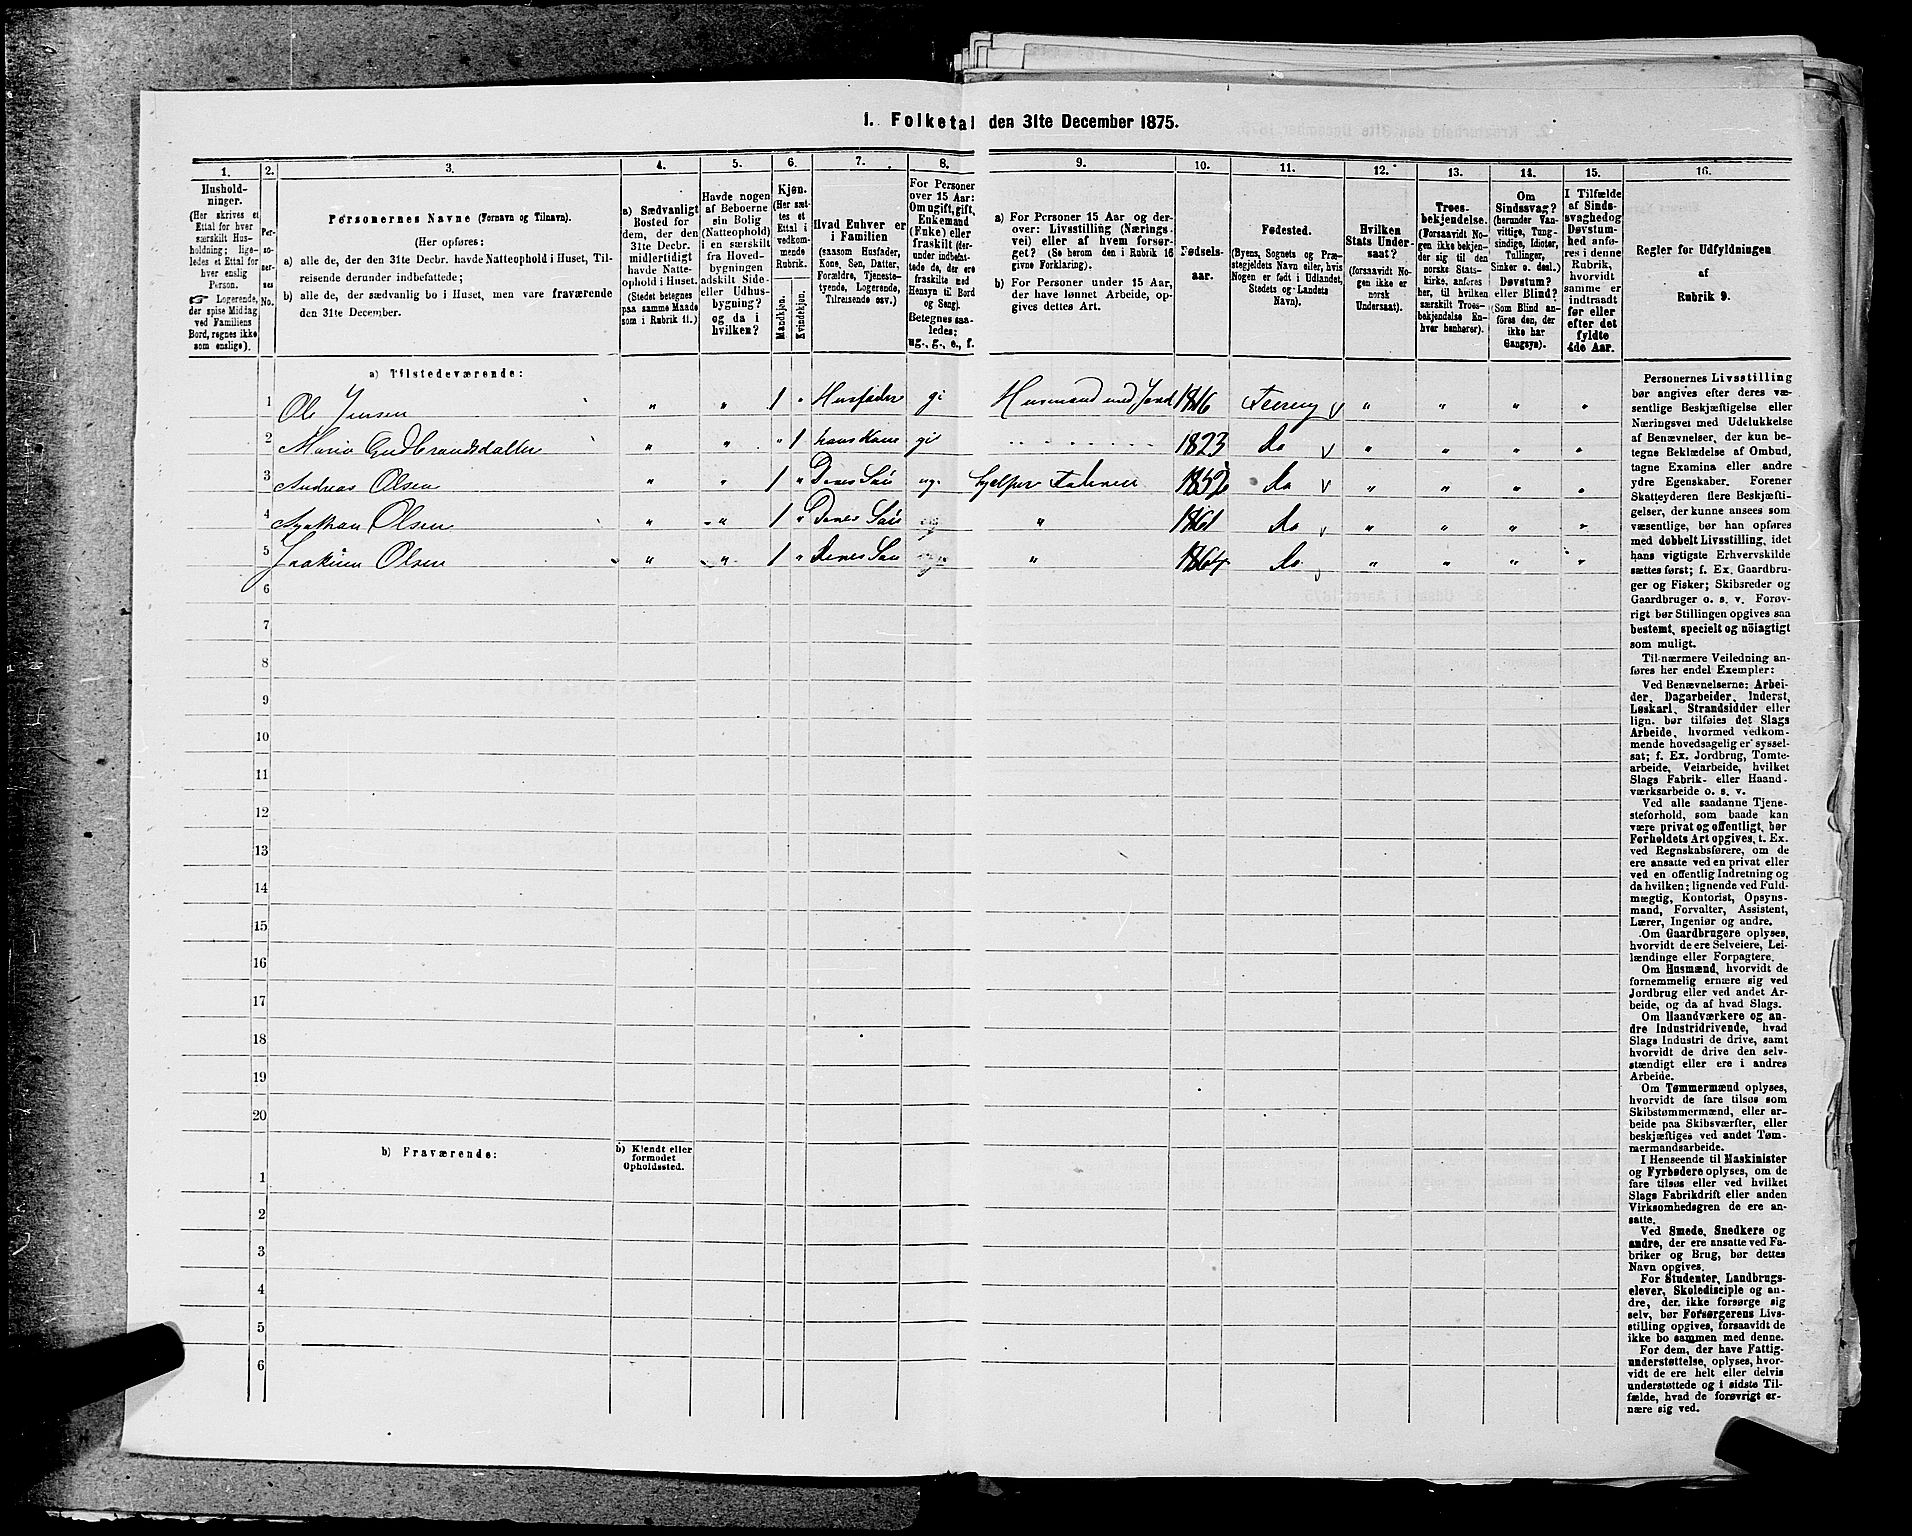 1. Folketal den 31te December 1875.
1. 2. 3. 4. 5. 6. 7. 8. 9. 10. 11. 12. 13. 14. 15. 16.
Hushold-
ninger.
(Her skrives et
Ettal for hver
særskilt Hus-
holdning; lige-
ledes et Ettal for
hver enslig
Person.
☞ Logerende,
der spise Middag
ved Familiens
Bord, regnes ikke
som enslige).
Per-
so-
ner-
nes
No.
Personernes Navne (Fornavn og Tilnavn).
(Her opføres:
a) alle de, der den 31te Decbr. havde Natteophold i Huset, Til-
reisende derunder indbefattede;
b) alle de, der sædvanlig bo i Huset, men vare fraværende
den 31te December.
a) Sædvanligt
Bosted for
dem, der den
31te Decbr.
midlertidigt
havde Natte-
ophold i Huset.
(Stedet betegnes
paa samme Maade
som i Rubrik 11.)
Havde nogen
af Beboerne
sin Bolig
(Natteophold)
i en særskilt
fra Hoved-
bygningen
adskilt Side-
eller Udhus-
bygning?
og da i
hvilken?
Kjøn.
(Her sæt-
tes et
Ettal i
vedkom-
mende
Rubrik.
Mandkjøn.
Kvindekjøn.
Hvad Enhver er
i Familien
(saasom Husfader,
Kone, Søn, Datter,
Forældre, Tjeneste-
tyende, Logerende,
Tilreisende osv.)
For Personer
over 15 Aar:
Om ugift, gift,
Enkemand
(Enke) eller
fraskilt (der-
under indbefat-
tede de, der ere
fraskilte med
Hensyn til Bord
og Seng).
Betegnes saa-
ledes:
ug., g., e., f.
a) For Personer 15 Aar og der-
over: Livsstilling (Nærings-
vei) eller af hvem forsør-
get? (Se herom den i Rubrik 16
givne Forklaring).
b) For Personer under 15 Aar,
der have lønnet Arbeide, op-
gives dettes Art.
Fødsels-
aar.
Fødested.
(Byens, Sognets og Præ-
stegjeldets Navn eller, hvis
Nogen er født i Udlandet,
Stedets og Landets
Navn).
Hvilken
Stats Under-
saat?
(forsaavidt No-
gen ikke er
norsk
Undersaat).
Troes-
bekjendelse.
(Forsaavidt No-
gen ikke bekjen-
der sig til den
norske Stats-
kirke, anføres
her, til hvilken
særskilt Troes-
bekjendelse En-
hver henhører).
Om
Sindssvag?
(herunder Van-
vittige, Tung-
sindige, Idioter,
Tullinger,
Sinker o. desl.)
Døvstum?
eller Blind?
(Som Blind an-
føres den, der
ikke har
Gangsyn).
I Tilfælde
af Sinds-
svaghed og
Døvstum-
hed anfø-
res i denne
Rubrik,
hvorvidt
samme er
indtraadt
før eller
efter det
fyldte
4de Aar.
Regler for Udfyldningen
af
Rubrik 9.
a) Tilstedeværende:
1 Ole Jensen " " 1 " Husfader gi Husmand med Jord 1816 Feiring " " " "
2 Maria Gudbrandsdatter " " " 1 hans Kone gi 1823 do " " " "
3 Andreas Olsen " " 1 " Deres Søn ug. hjelper Faderen 1852 do " " " "
4 Olsen " " 1 " Deres Søn " 1861 do " " " "
5 Joakim Olsen " " 1 " Deres Søn " 1864 do " " " "
6
7
8
9
10
11
12
13
14
15
16
17
18
19
20
b) Fraværende:
b) Kjendt eller
formodet
Opholdssted.
1
2
3
4
5
6
Personernes Livsstilling
bør angives efter deres væ-
sentlige Beskjæftigelse eller
Næringsvei med Udelukkelse
af Benævnelser, der kun be-
tegne Beklædelse af Ombud,
tagne Examina eller andre
ydre Egenskaber. Forener
Skatteyderen flere Beskjæfti-
gelser, der kunne ansees som
væsentlige, bør han opføres
med dobbelt Livsstilling, idet
hans vigtigste Erhvervskilde
sættes først; f. Ex. Gaardbru-
ger og Fisker; Skibsreder og
Gaardbruger o. s. v. Forøv-
rigt bør Stillingen opgives saa
bestemt, specielt og nöiagtigt
som muligt.
Til nærmere Veiledning an-
føres her endel Exempler:
Ved Benævnelserne: Arbei-
der, Dagarbeider, Inderst,
Løskarl, Strandsidder eller
lign. bør tilføies det Slags
Arbeide, hvormed vedkom-
mende hovedsagelig er syssel-
sat; f. Ex. Jordbrug, Tomte-
arbeide, Veiarbeide, hvilket
Slags Fabrik- eller Haand-
værksarbeide o. s. v.
Ved alle saadanne Tjene-
steforhold, som baade kan
være privat og offentligt, bør
Forholdets Art opgives, t. Ex.
ved Regnskabsførere, om de
ere ansatte ved en privat eller
ved en offentlig Indretning og
da hvilken; lignende ved Fuld-
mægtig, Kontorist, Opsyns-
mand, Forvalter, Assistent,
Lærer, Ingeniør og andre.
Om Gaardbrugere oplyses,
hvorvidt de ere Selveiere, Lei-
lændinge eller Forpagtere.
Om Husmænd, hvorvidt de
fornemmelig ernære sig ved
Jordbrug eller ved andet Ar-
beide, og da af hvad Slags.
Om Haandværkere og an-
dre Industridrivende, hvad
Slags Industri de drive, samt
hvorvidt de drive den selv-
stændigt eller ere i andres
Arbeide.
Om Tømmermænd oplyses,
hvorvidt de fare tilsøs som
Skibstømmermænd, eller ar-
beide paa Skibsværfter, eller
beskjæftiges ved andet Tøm-
mermandsarbeide.
I Henseende til Maskinister
og Fyrbødere oplyses, om de
fare tilsøs eller ved hvilket
Slags Fabrikdrift eller anden
Virksomhedsgren de ere an-
satte.
Ved Smede, Snedkere og
andre, der ere ansatte ved Fa-
briker og Brug, bør dettes
Navn opgives.
For Studenter, Landbrugs-
elever, Skoledisciple og an-
dre, der ikke forsørge sig
selv, bør Forsørgerens Livs-
stilling opgives, forsaavidt de
ikke bo sammen med denne.
For dem, der have Fattig-
understøttelse, oplyses, hvor-
vidt de ere helt eller delvis
understøttede og i sidste Til-
fælde, hvad de forøvrigt er-
nære sig ved.